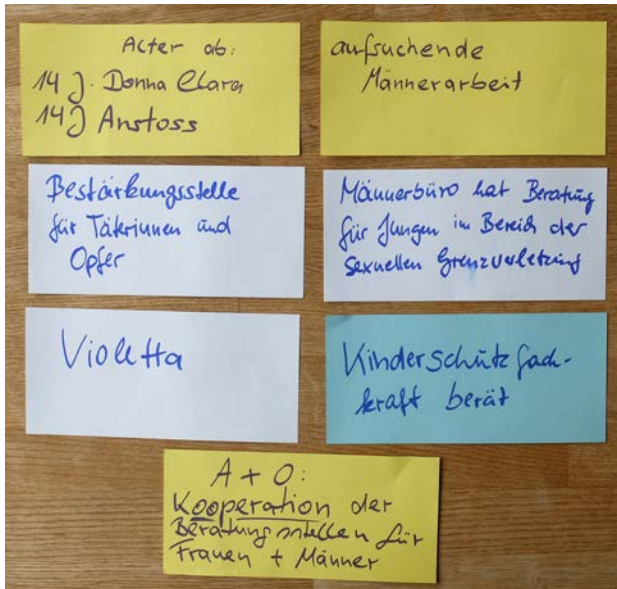 Alter ab:
14 J. Donna Clara
14 J Anstoss
aufsuchende
Männerarbeit
Bestärkungsstelle
für Täterinnen und
Opfer
Männerbüro hat Beratung
für Jungen im Bereich der
sexuellen Grenzverletzung
Violetta
Kinderschutzfach-
kraft berät
A + O:
Kooperation der
Beratungsstellen für
Frauen + Männer